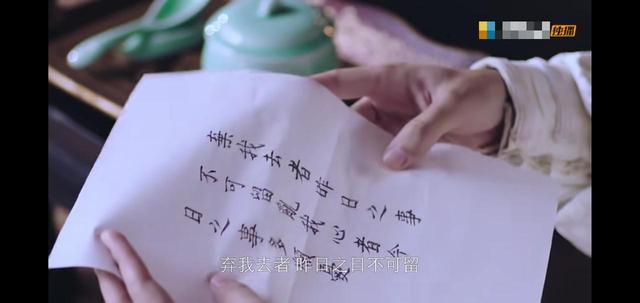 独播
棄我去者昨日之事
不可留亂我心者今
日之事多憂
弃我去者 昨日之日不可留